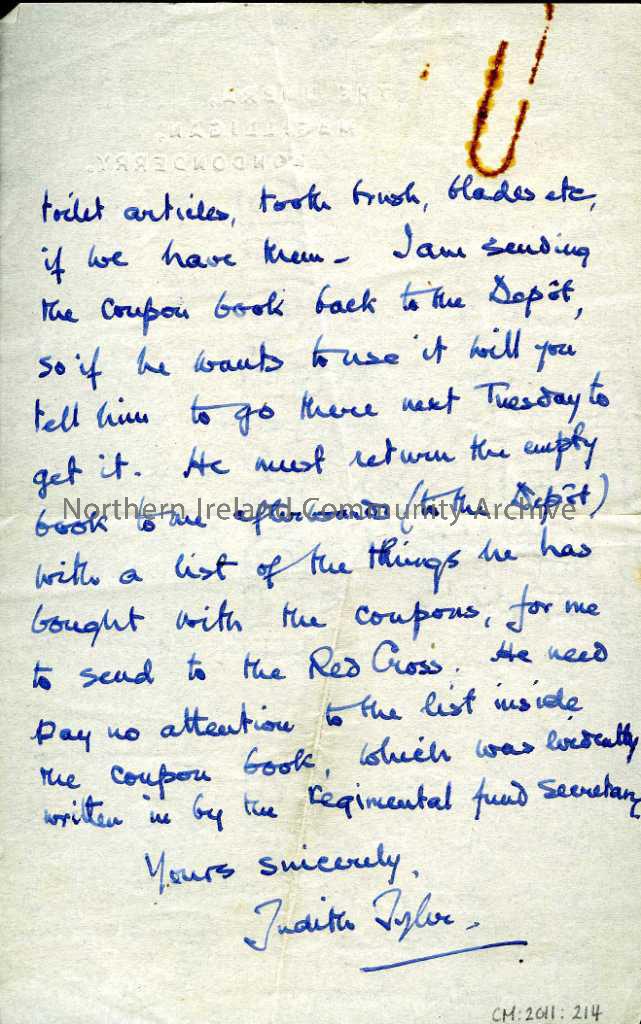 toilet articles, tooth brush, blades etc,
if we have them - I am sending
the coupon book back to the Depôt,
so if he wants to use it will you
tell him to go there next Tuesday to
get it. He must return the empty
book to me afterwards (to the Depôt)
Northern Ireland Community Archive
with a list of the things he has
bought with the coupons, for me
to send to the Red Cross. He need
pay no attention to the list inside
the coupon book, which was evidently
written in by the regimental fund secretary
Yours sincerely,
Judith Tyler.
CM:2011:214